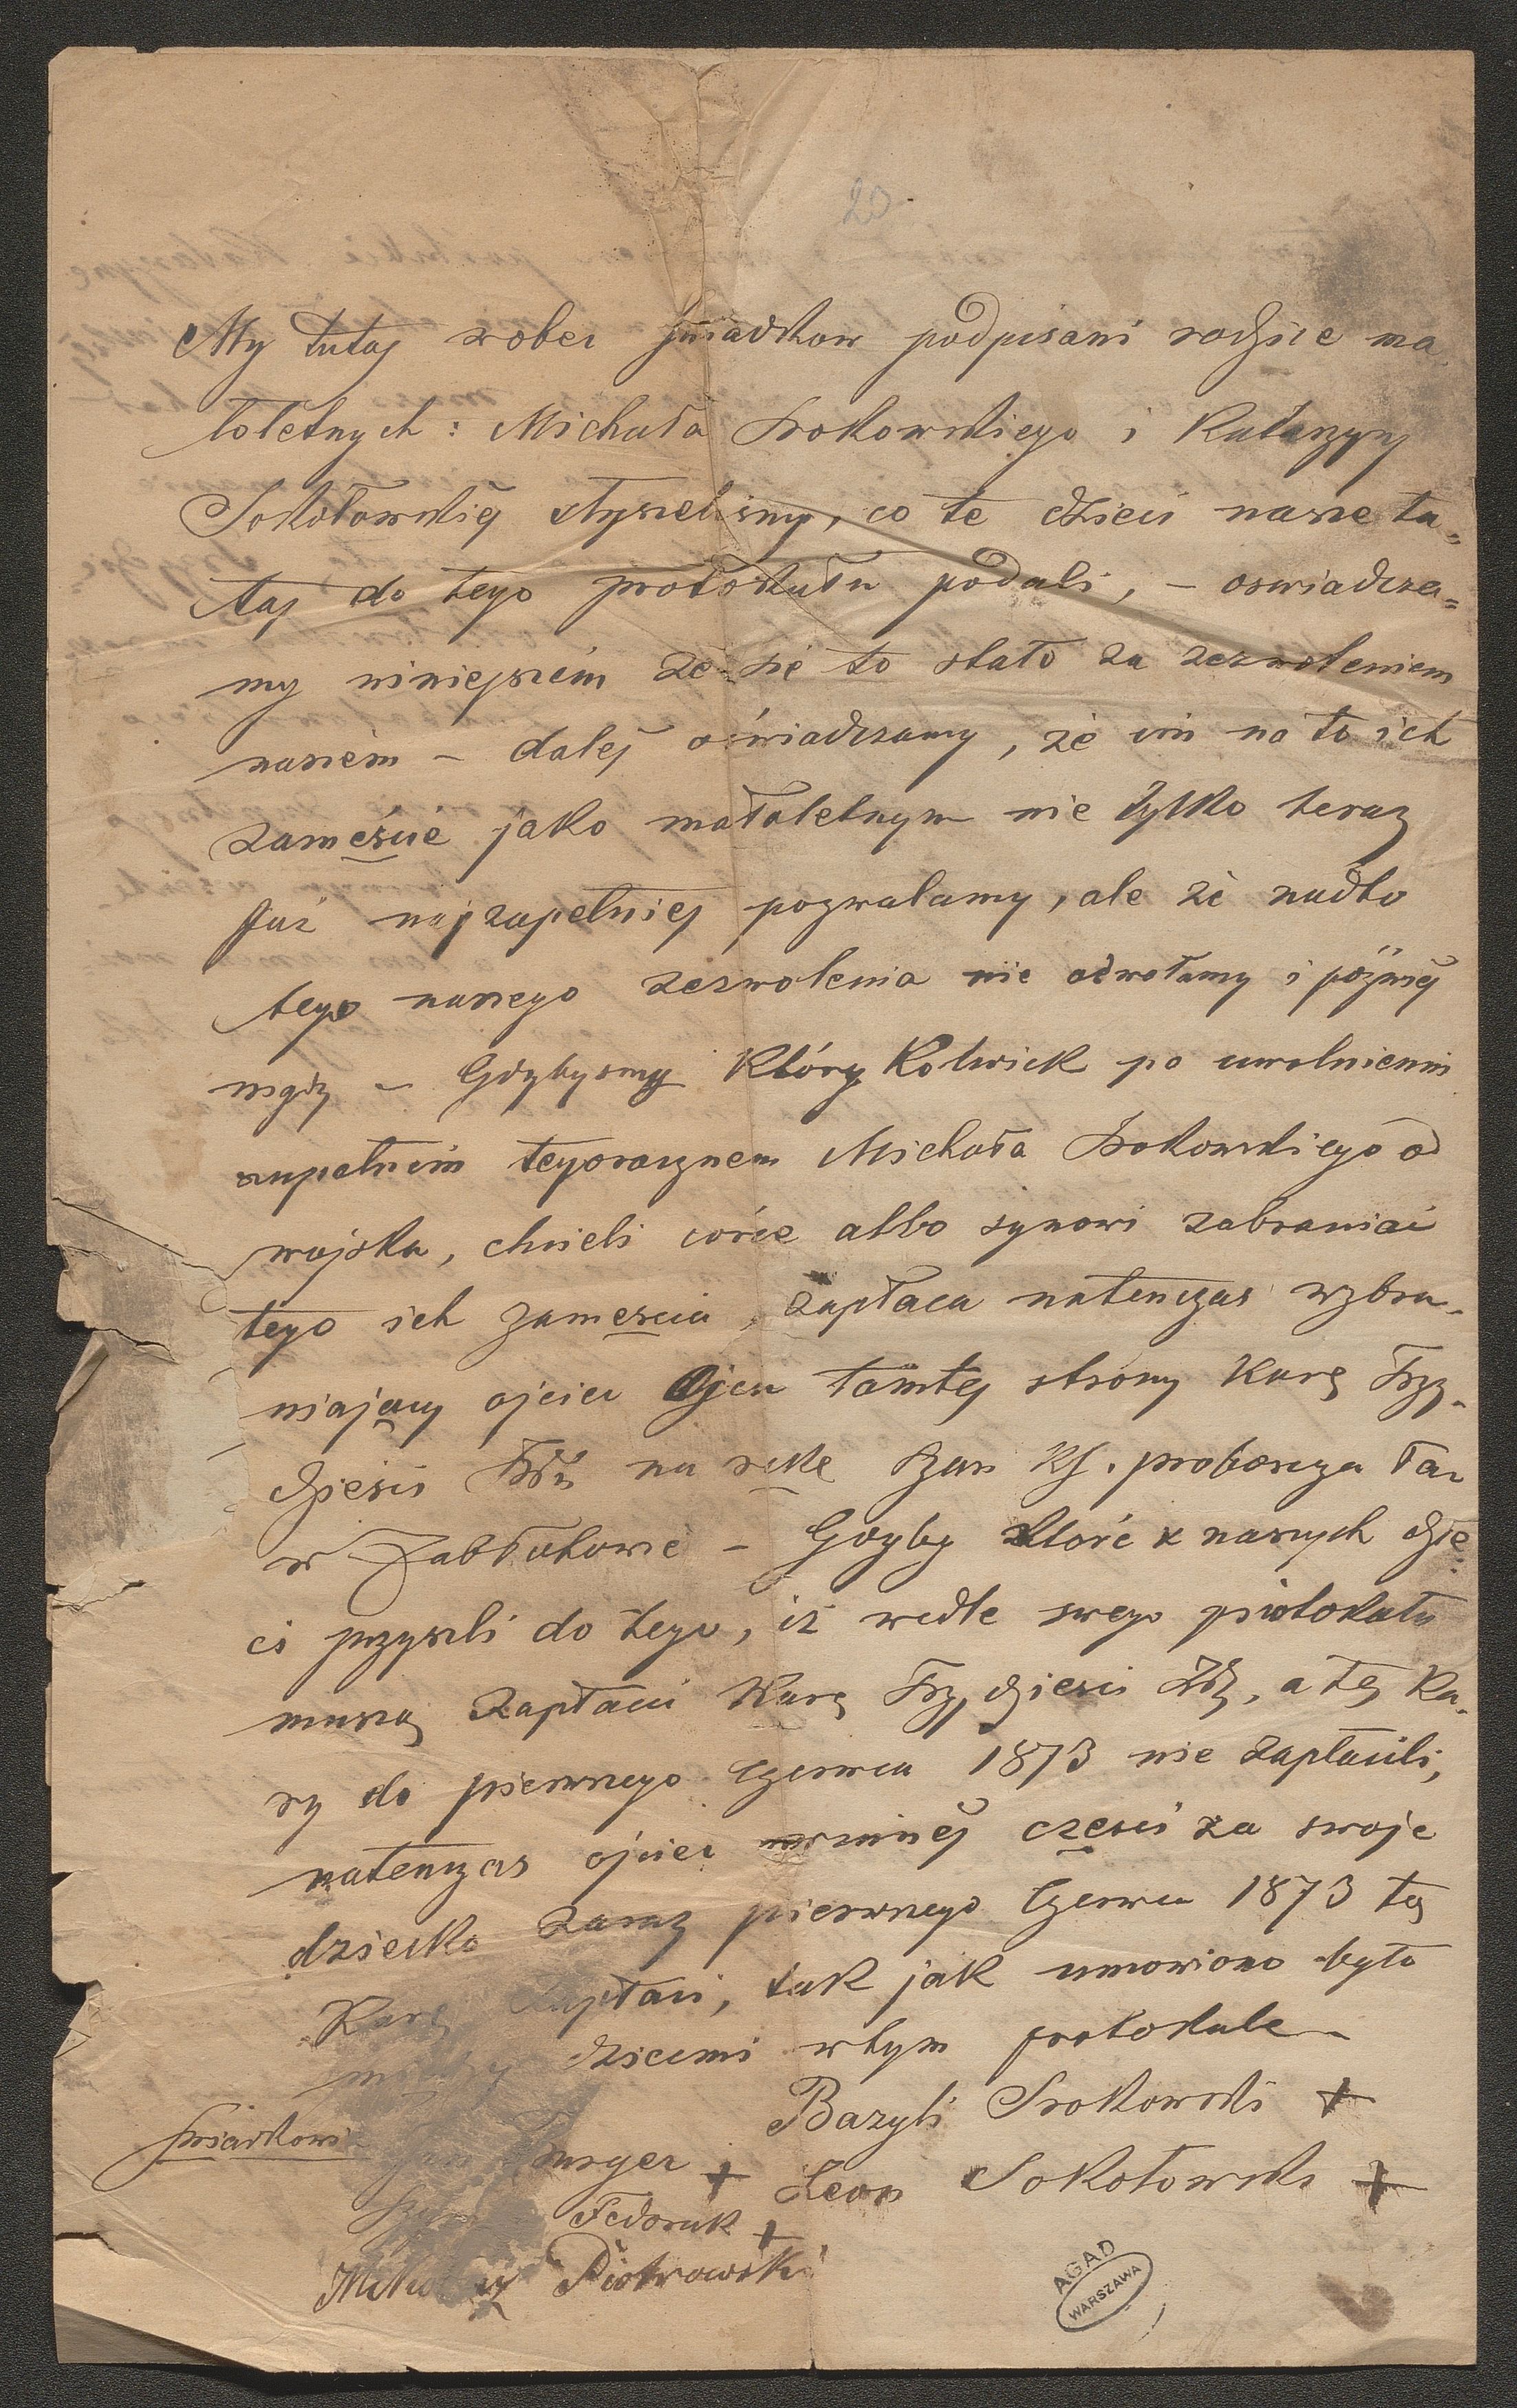 20
My tutaj wobec świadkow podpisani rodzice ma
łoletnych: Michała Srokowskiego i Katarzyny
Sokołowskiej słyszeliśmy, co te dzieci nasze tu=
taj do tego protokułu podali, – oswiadcza=
my niniejszem że się to stało za zezwoleniem
naszem – dalej oświadczamy, że im na to ich
zameście jako małoletnym nie tylko teraz
już najzupełniej pozwalamy, ale że nadto
tego naszego zezwolenia nie odwołamy i późniéj
nigdy – Gdybysmy którykolwiek po uwolnieniu
zupełnem tegorocznem Michała Srokowskiego od
wojska, chcieli córce albo synowi zabraniać
tego ich zamęscia, zapłaca natenczas wzbra-
niający ojciec Ojcu tamtej strony karę Trzy-
dzieści na ręke Ks. proboszcza łac
w Zabłotowie – Gdyby które z naszych dzie
ci przyszli do tego, iż wedle swego protokułu
muszą zapłacić karę Trzydzieści Złr, a tej ka-
ry do pierwszego Czerwca 1873 nie zapłacili,
natenczas ojciec winnéj częsci za swoje
dziecko zaraz pierwszego Czerwca 1873 tę
karę zapłaci, tak jak umowiono było
między dziecmi wtym protokule –
Bazyli Srokowski +
Świadkowie Jan Burger +
Leon Sokołowski +
Fedoruk +
Mikołaj Piotrowski
AGAD
WARSZAWA